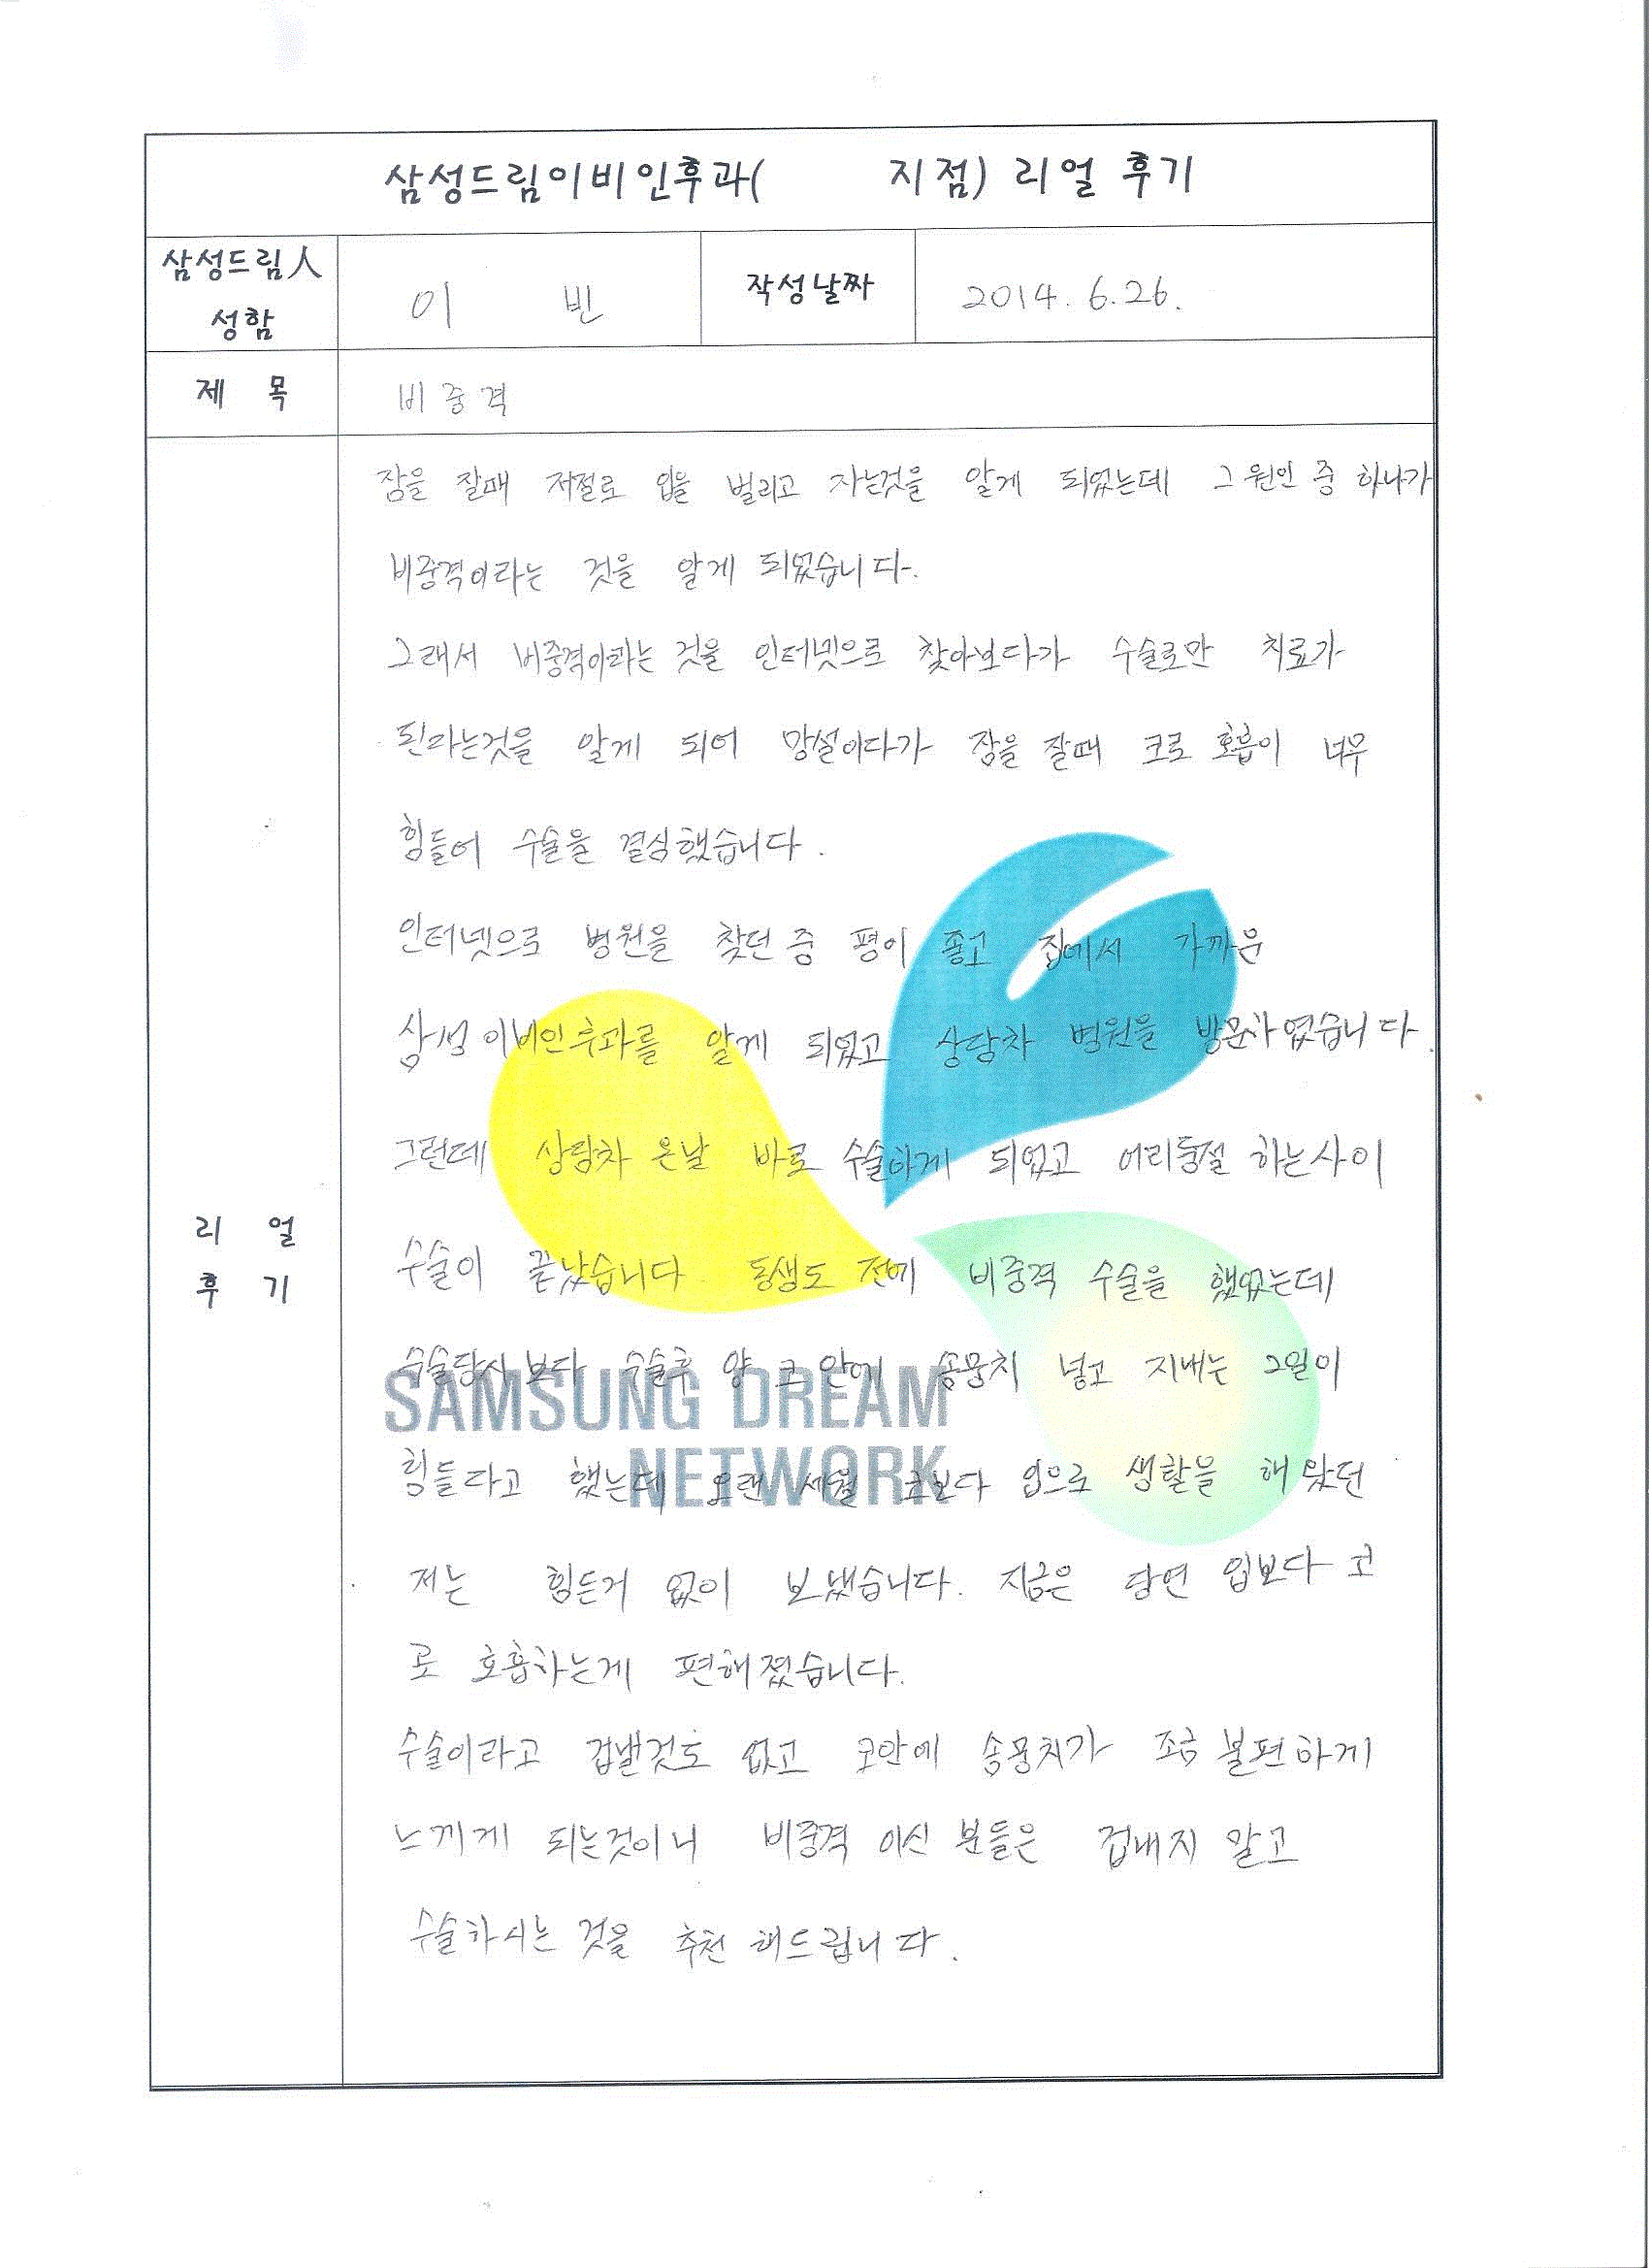 삼성드림이비인후과(      지점) 리얼 후기
삼성드림人
성함
이 빈
작성날짜
2014. 6. 26.
제 목
비중격
잠을 잘때 저절로 입을 벌리고 자는것을 알게 되었는데 그 원인 중 하나가
비중격이라는 것을 알게 되었습니다.
그래서 비중격이라는 것을 인터넷으로 찾아보다가 수술로만 치료가
된라는것을 알게 되어 망설이다가 잠을 잘때 코로 호흡이 너무
힘들어 수술을 결심했습니다.
인터넷으로 병원을 찾던 중 평이 좋고 집에서 가까운
삼성 이비인후과를 알게 되었고 상담차 병원을 방문하였습니다.
그런데 상담차 온날 바로 수술하게 되었고 어리둥절 하는사이
수술이 끝났습니다 동생도 전에 비중격 수술을 했었는데
수술당시 보다 수술후 양 코 안에 솜뭉치 넣고 지내는 2일이
힘들다고 했는데 오랜 세월 코보다 입으로 생활을 해 왔던
저는 힘든거 없이 보냈습니다. 지금은 당연 입보다 코
로 호흡하는게 편해졌습니다.
수술이라고 겁낼것도 없고 코안에 솜뭉치가 조금 불편하게
느끼게 되는것이니 비중격 이신 분들은 겁내지 말고
수술하시는 것을 추천 해드립니다.
리 얼
후 기
SAMSUNG DREAM
NETWORK